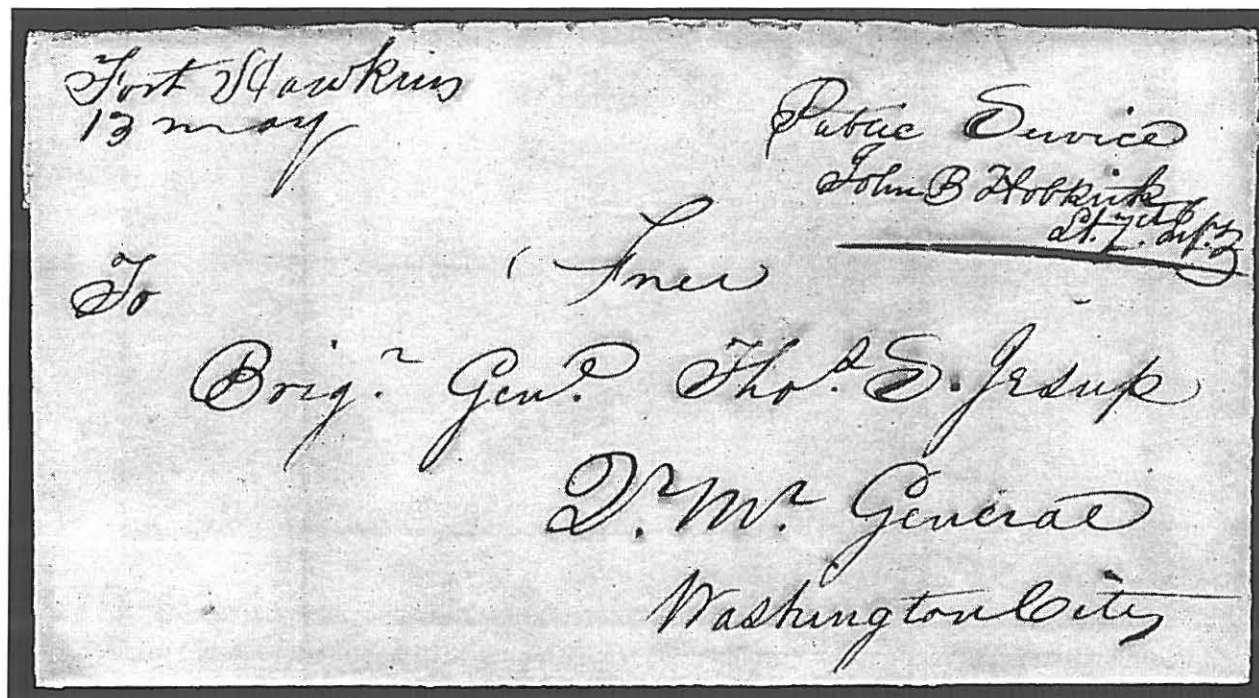 Fort Hawkins
13 may
Public Service
John B Hobkirk
Lt. 7th Inf.
Free
To
Brigr Genl Thos S. Jesup
Qr. Mr. General
Washington City